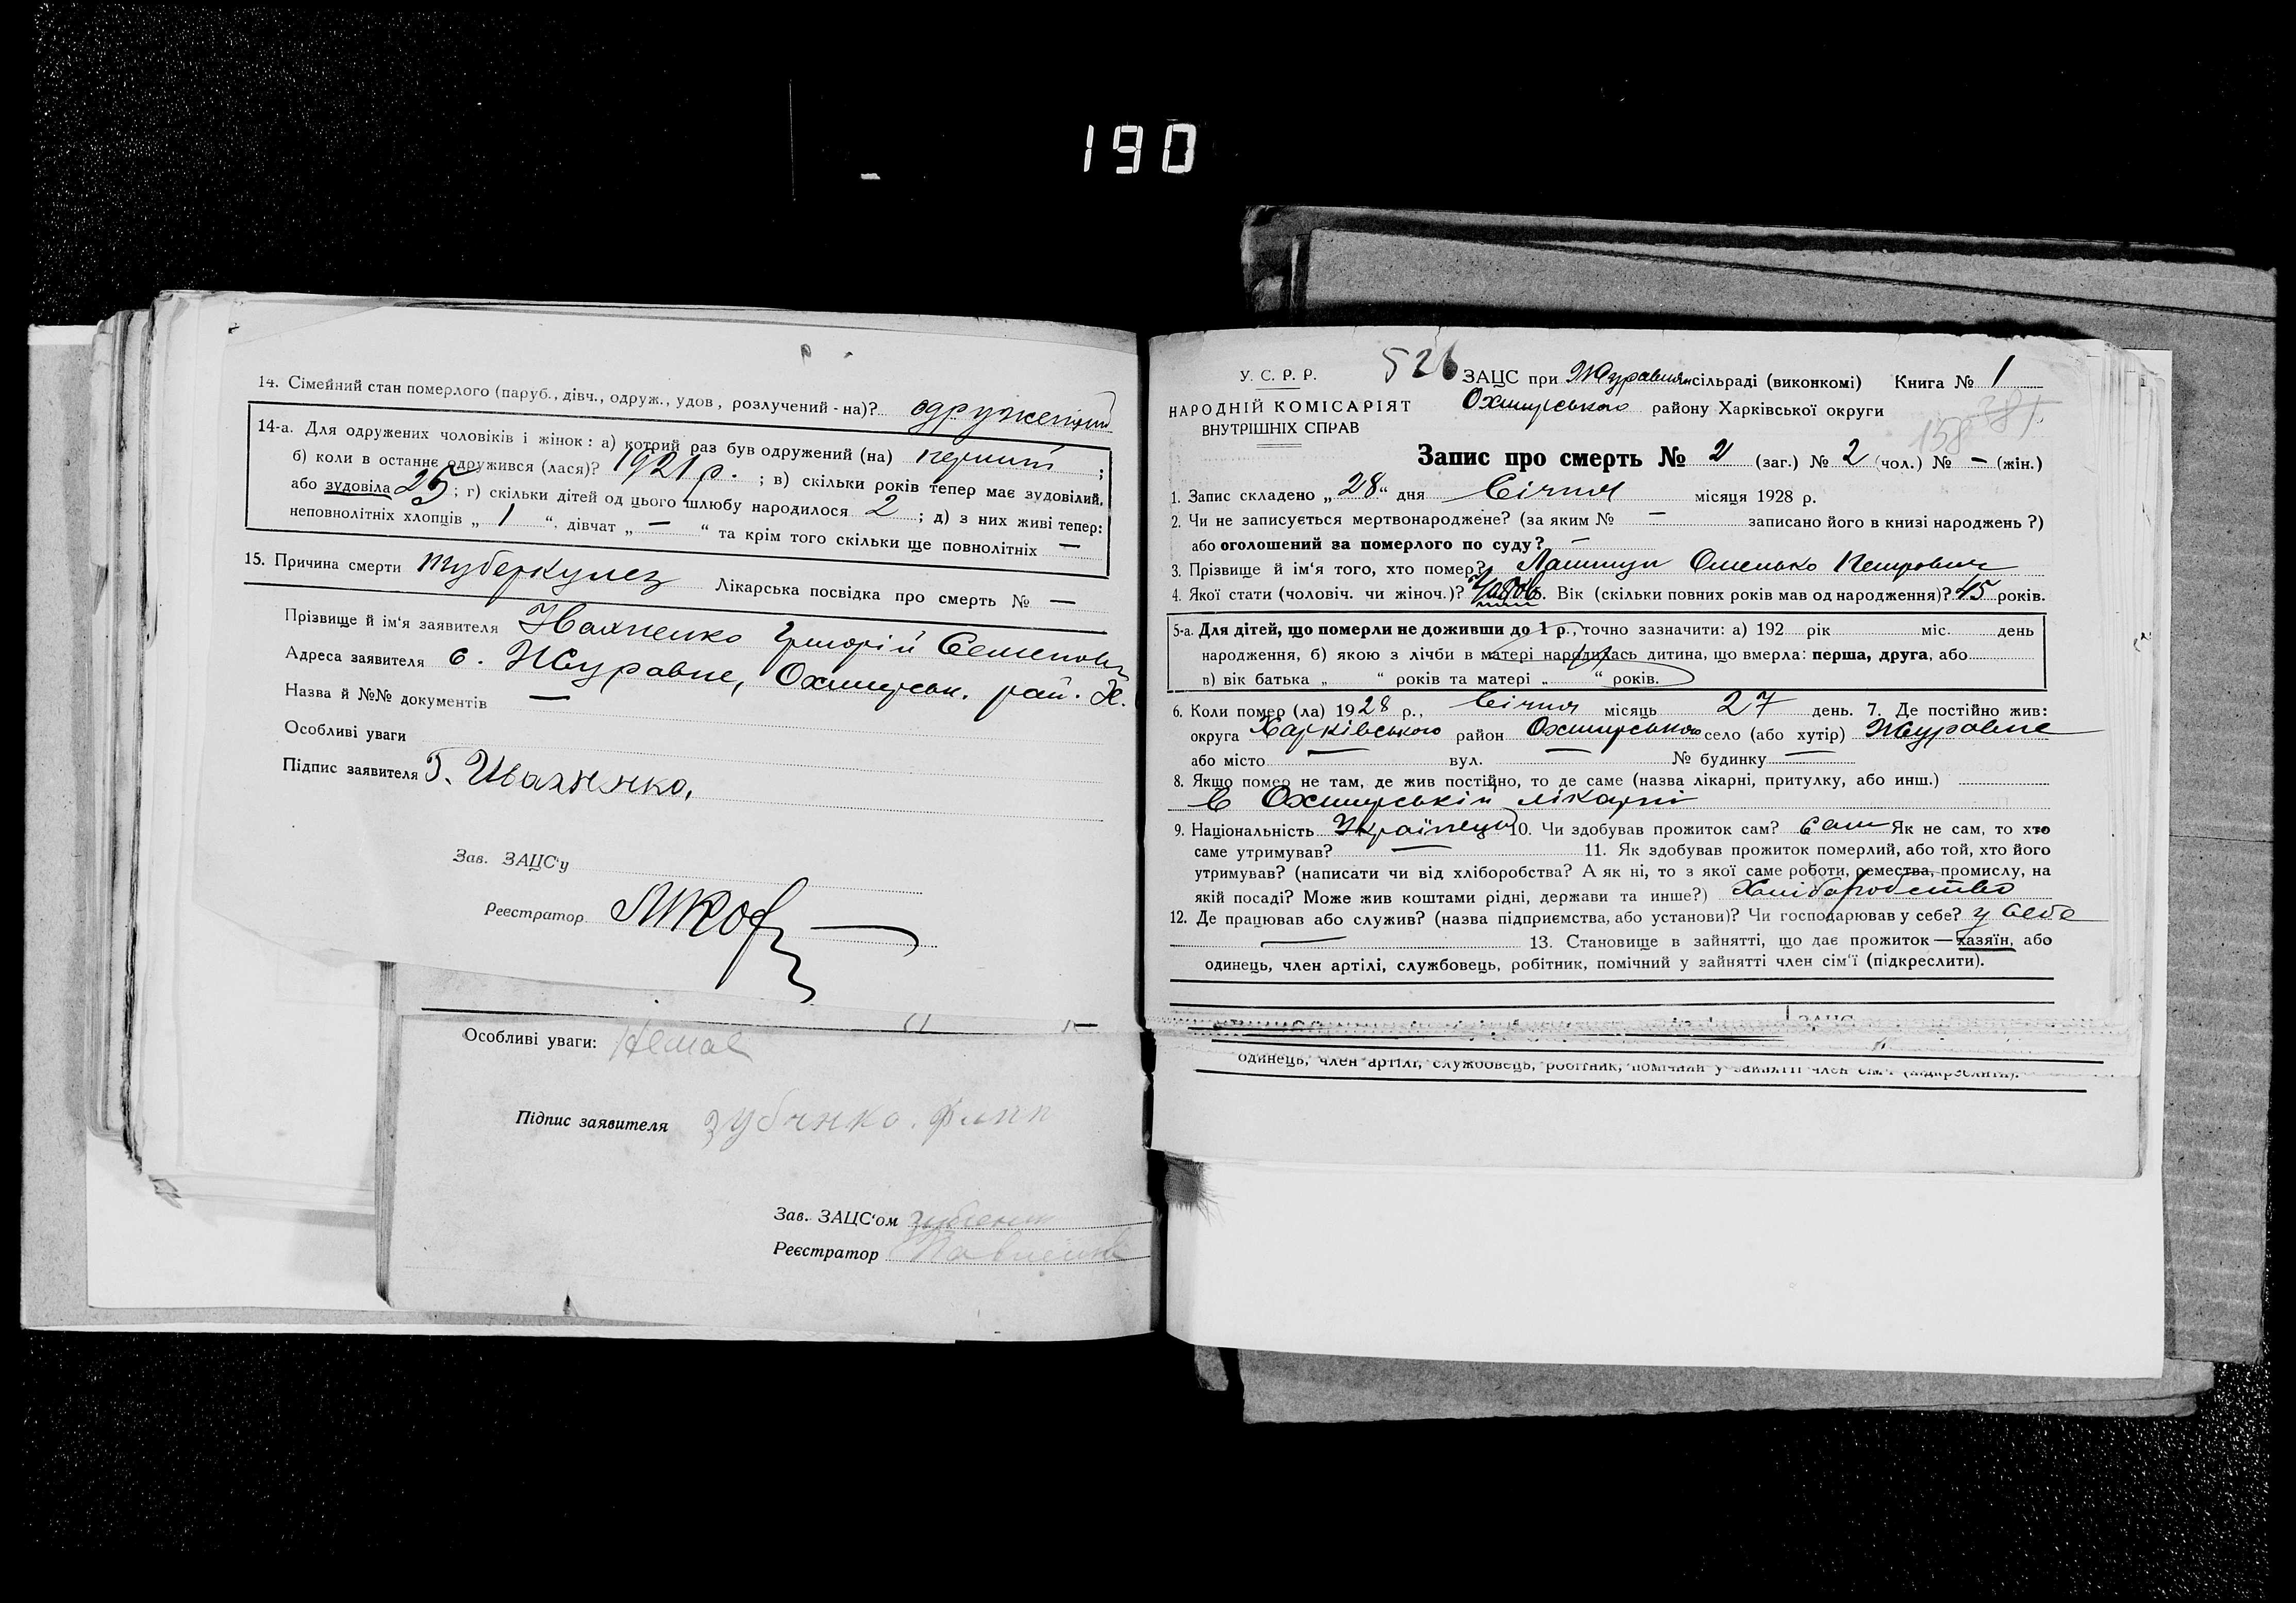 190
14. Сімейний стан померлого (паруб., дівч., одруж., удов, розлучений - на)? одружений
14-а. Для одружених чоловіків і жінок: а) котрий раз був одружений (на) перший ;
б) коли в останнє одружився (лася)? 1921 р. ; в) скільки років тепер має зудовілий,
або зудовіла 25 ; г) скільки дітей од цього шлюбу народилося 2 ; д) з них живі тепер:
неповнолітніх хлопців „ 1 “, дівчат „ — “ та крім того скільки ще повнолітніх —
15. Причина смерти туберкулез Лікарська посвідка про смерть № —
Прізвище й ім'я заявителя Івахненко Григорій Семенович
Адреса заявителя с. Журавне, Охтирськ. рай. Х.
Назва й №№ документів —
Особливі уваги
Підпис заявителя Г. Ивахненко,
Зав. ЗАЦС'у
Реєстратор
Особливі уваги: Немає
Підпис заявителя
Зав. ЗАЦС'ом
Реєстратор
У. С. Р. Р.
НАРОДНІЙ КОМІСАРІЯТ
ВНУТРІШНІХ СПРАВ
526 ЗАЦС при Журавнян сільраді (виконкомі) Книга № 1
Охтирського району Харківської округи
158 381
Запис про смерть № 2 (заг.) № 2 (чол.) № — (жін.)
1. Запис складено „ 28 “ дня Січня місяця 1928 р.
2. Чи не записується мертвонароджене? (за яким № — записано його в книзі народжень ?)
або оголошений за померлого по суду? —
3. Прізвище й ім'я того, хто помер? Омелько Петрович
4. Якої стати (чоловіч. чи жіноч.)? Чолов. Вік (скільки повних років мав од народження)? 45 років.
5-а. Для дітей, що померли не доживши до 1 р., точно зазначити: а) 192 рік міс. день
народження, б) якою з лічби в матері народилась дитина, що вмерла: перша, друга, або
в) вік батька „ “ років та матері „ “ років.
6. Коли помер (ла) 1928 р., Січня місяць 27 день. 7. Де постійно жив:
округа Харківського район Охтирського село (або хутір) Журавне
або місто — вул. — № будинку —
8. Якщо помер не там, де жив постійно, то де саме (назва лікарні, притулку, або инш.)
В Охтирській лікарні
9. Національність Українець 10. Чи здобував прожиток сам? сам Як не сам, то хто
саме утримував? — 11. Як здобував прожиток померлий, або той, хто його
утримував? (написати чи від хліборобства? А як ні, то з якої саме роботи, ремества, промислу, на
якій посаді? Може жив коштами рідні, держави та инше?) Хліборобство
12. Де працював або служив? (назва підприємства, або установи)? Чи господарював у себе? у себе
— 13. Становище в зайнятті, що дає прожиток — хазяїн, або
одинець, член артілі, службовець, робітник, помічний у зайнятті член сім'ї (підкреслити).
ЗАЦС
одинець, член артілі, службовець, робітник, помічний у зайнятті член сім'ї (підкреслити).